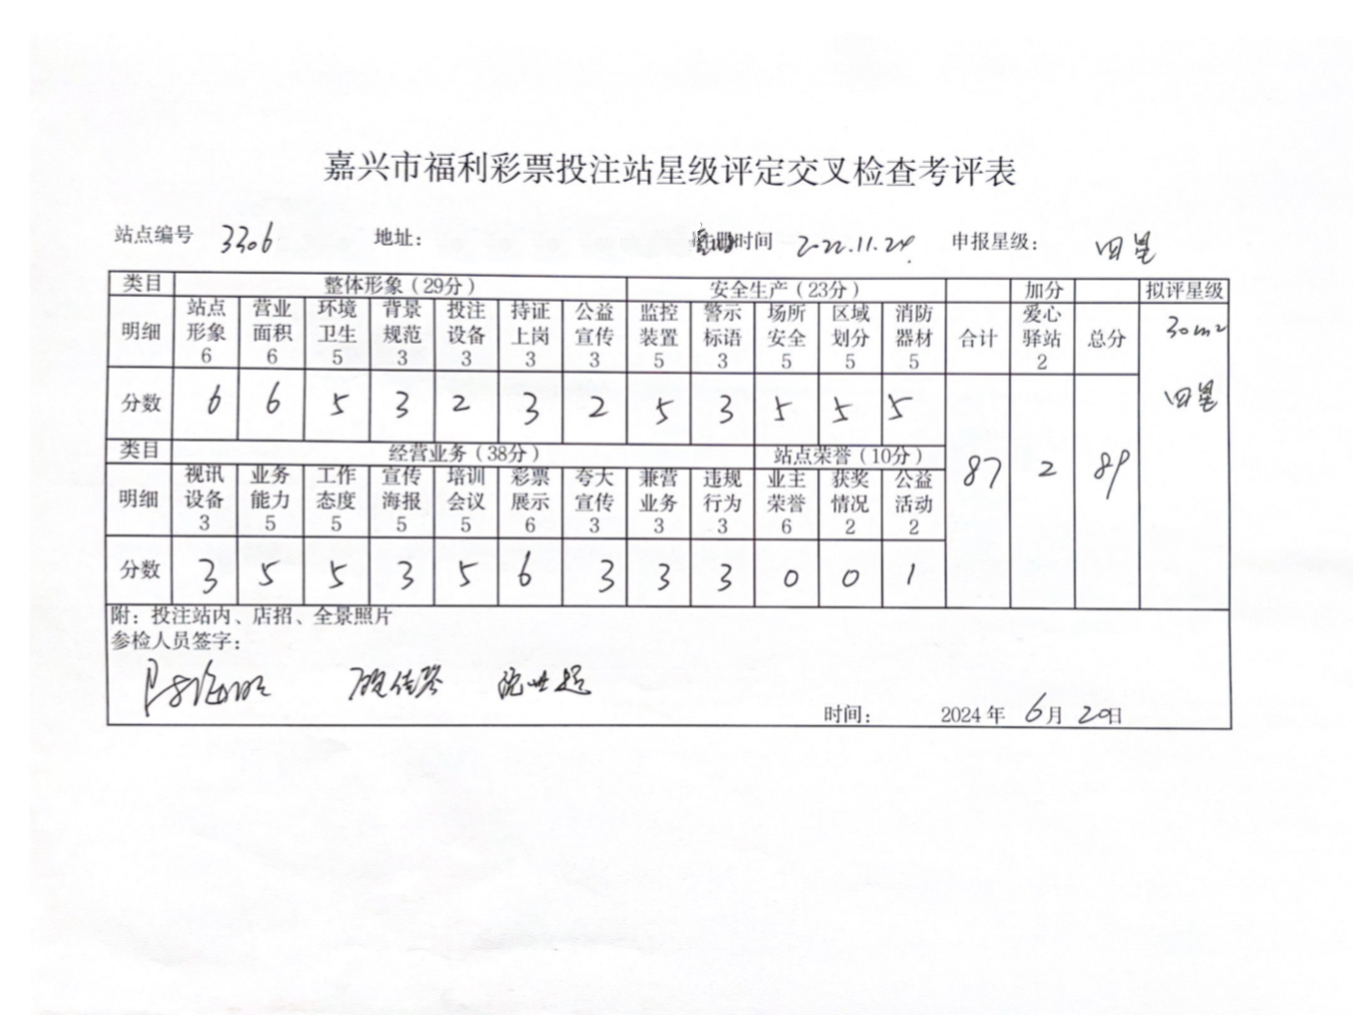 嘉兴市福利彩票投注站星级评定交叉检查考评表
站点编号 3306 地址： 时间 2022.11.24. 申报星级： 四星
类目 整体形象（29分） 安全生产（23分） 加分 拟评星级
明细 站点形象6 营业面积6 环境卫生5 背景规范3 投注设备3 持证上岗3 公益宣传3 监控装置5 警示标语3 场所安全5 区域划分5 消防器材5 合计 爱心驿站2 总分 30m2
分数 6 6 5 3 2 3 2 5 3 5 5 5 四星
类目 经营业务（38分） 站点荣誉（10分） 87 2 89
明细 视讯设备3 业务能力5 工作态度5 宣传海报5 培训会议5 彩票展示6 夸大宣传3 兼营业务3 违规行为3 业主荣誉6 获奖情况2 公益活动2
分数 3 5 5 3 5 6 3 3 3 0 0 1
附：投注站内、店招、全景照片
参检人员签字：
时间： 2024年 6月 20日